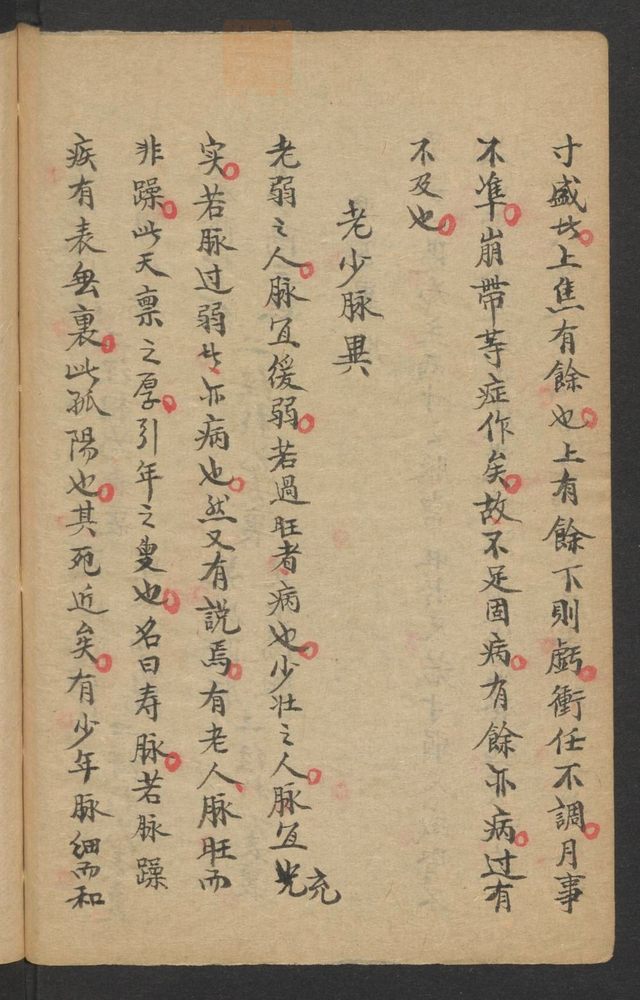 寸盛此上焦有餘也上有餘下則虧衝任不調月事
不準崩帶等症作矣故不足固病有餘亦病过有
不及也
老少脉異
老弱之人脉宜緩弱若過旺者病也少壯之人脉宜充
实若脉过弱此亦病也然又有説焉有老人脉旺而
非躁此天禀之厚引年之叟也名曰寿脉若脉躁
疾有表無裏此孤陽也其死近矣有少年脉細而和